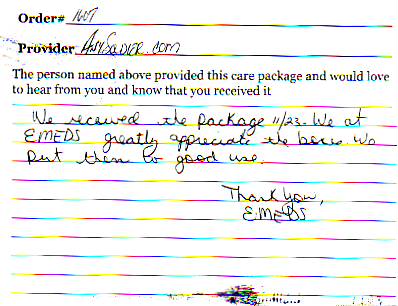 Order# 1607
Provider AnySoldier.com
The person named above provided this care package and would love
to hear from you and know that you received it
We received the package 11/23. We at
EMEDS greatly appreciate the boxes. We
put them to good use.
Thank You,
EMEDS